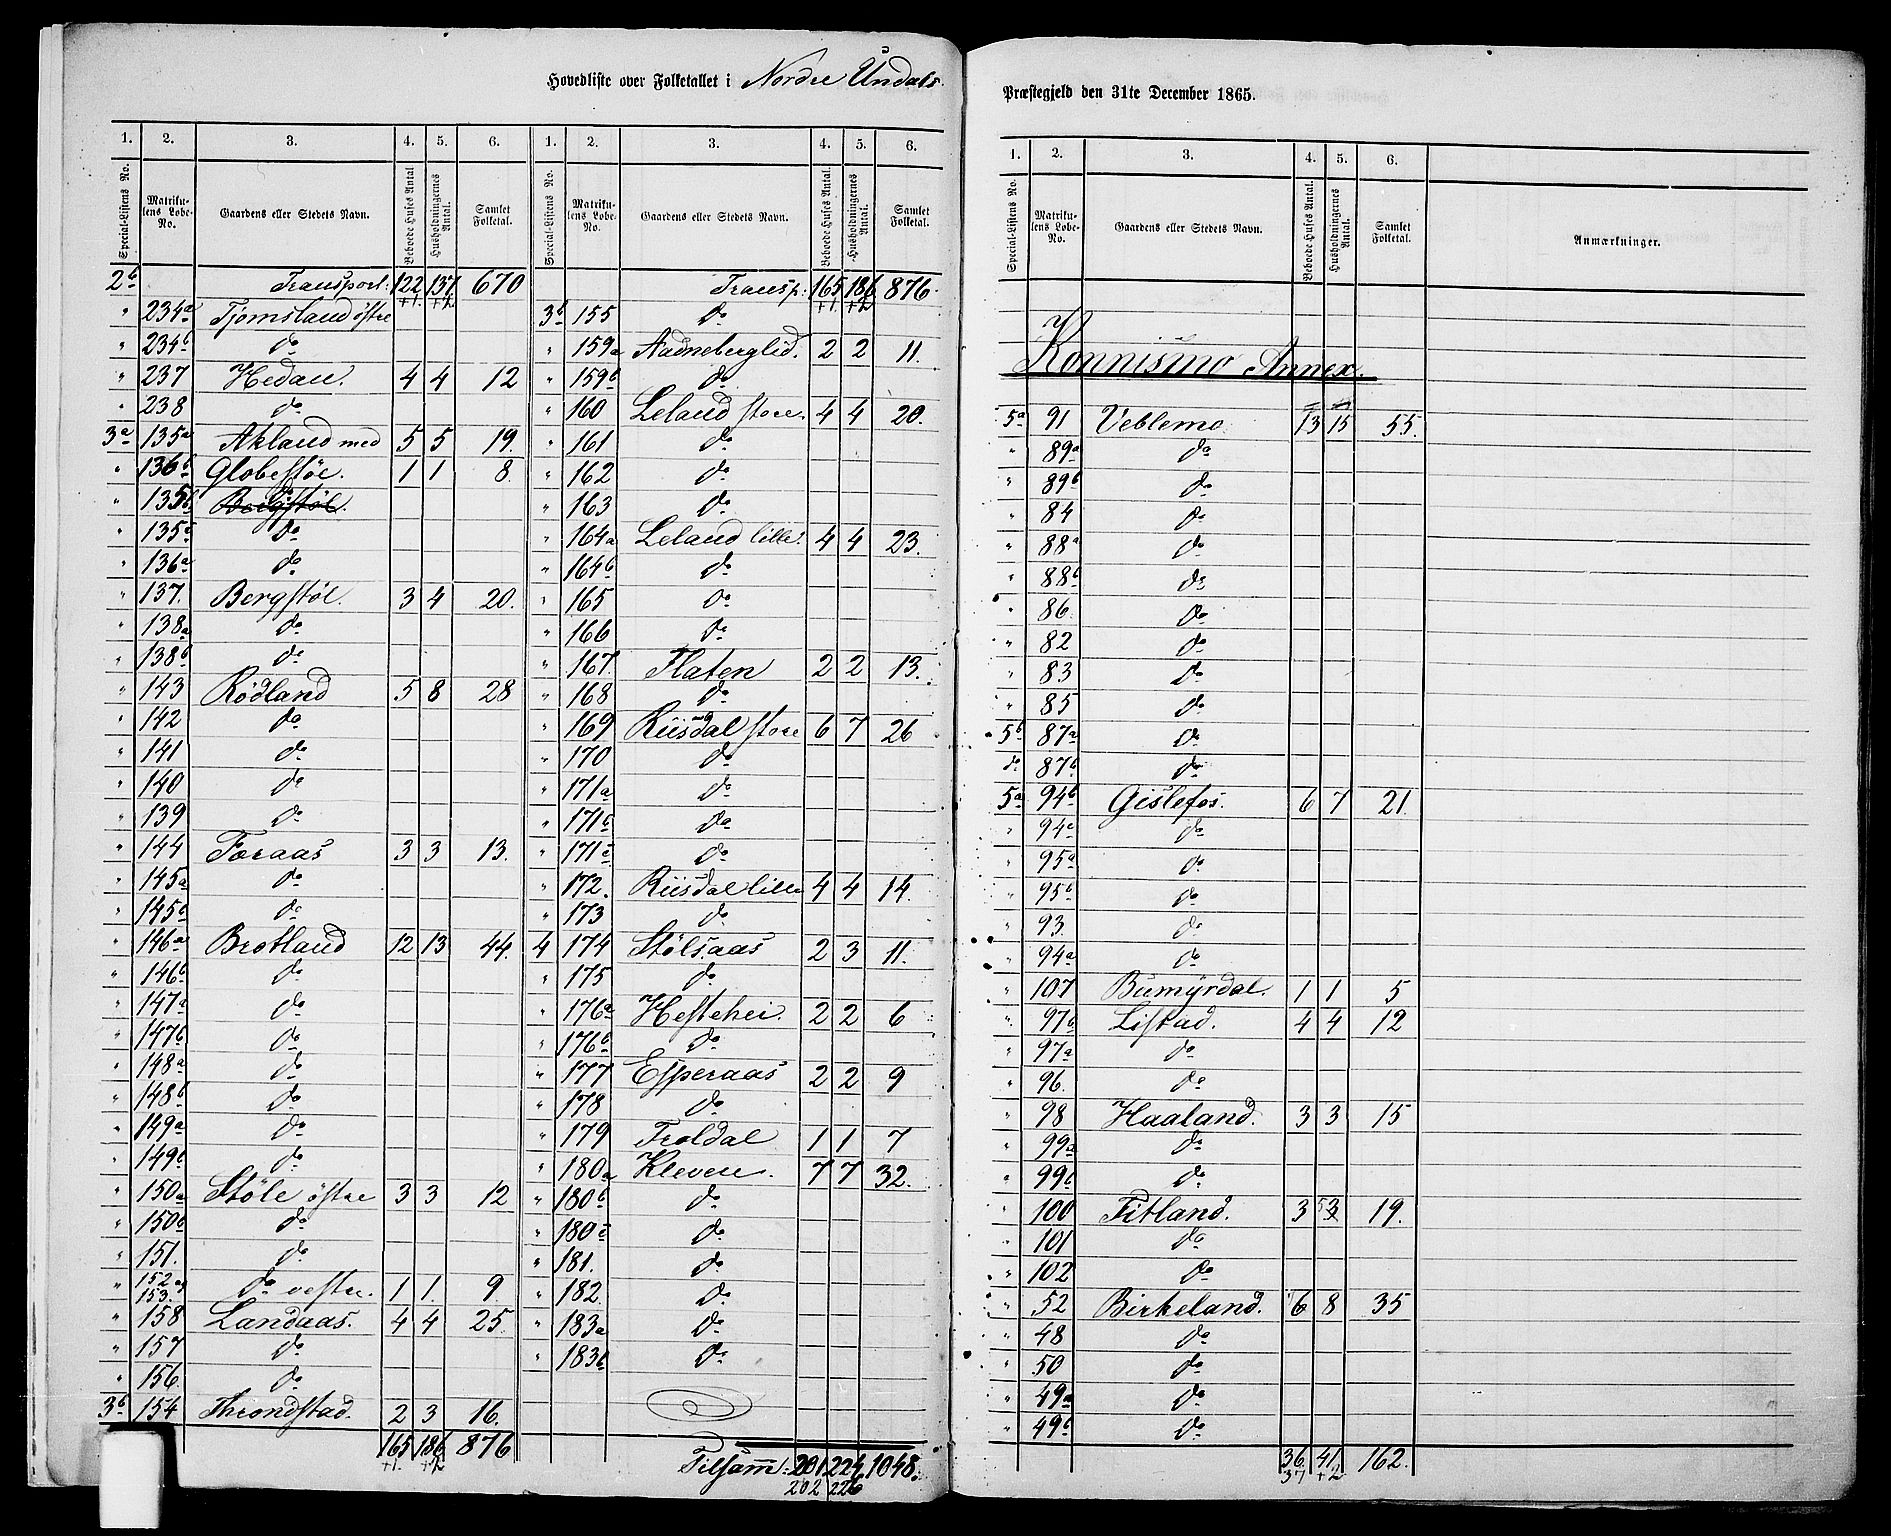 Hovedliste over Folketallet i Nordre Undals
1. 2. 3. 4. 5. 6. 1. 2. 3. 4. 5. 6.
Special-Listens No. Matrikulens Løbe-No. Gaardens eller Stedets Navn. Beboede Huses Antal Husholdningernes Antal. Samlet Folketal. Special-Listens No. Matrikulens Løbe-No. Gaardens eller Stedets Navn. Beboede Huses Antal. Husholdningernes Antal. Samlet Folketal.
2b Transport. 122 137 670
+1. +2
" 234a Tjomsland østre
" 234b do
" 237 Hedan. 4 4 12
" 238 do
3a 135a Akland med 5 5 19.
" 136b Globestøe. 1 1 8.
" 135b do
" 135c do
" 136a do
" 137. Bergstøl. 3 4 20.
" 138a do
" 138b do
" 143 Rödland 5 8 28
" 142 do
" 141 do
" 140 do
" 139 do
" 144 Foraas 3 3 13.
" 145a do
" 145b do
" 146a Brotland 12 13 44.
" 146b do
" 147a do
" 147b do
" 148a do
" 148b do
" 149a do
" 149b do
" 150a Støle østre 3 3 12
" 150b do
" 151. do
" 152 og 153. do vestre. 1 1. 9
" 158 Landaas. 4 4 25.
" 157 do
" 156 do
3b 154 Throndstad. 2 3 16.
165 186 876
+1. +2
Transp. 165 186 876
+1. +2
3b 155 do
" 159a Aadneberglid. 2 2 11.
" 159b do
" 160 Leland store. 4 4 20.
" 161 do
" 162 do
" 163 do
" 164a Leland lille. 4 4 23.
" 164b do
" 165 do
" 166 do
" 167. Flaten 2 2 13.
" 168 do
" 169 Riisdal store 6 7 26
" 170 do
" 171a do
" 171b do
" 171c do
" 172. Riisdal lille 4 4 14.
" 173 do
4 174 Stølsaas 2 3 11.
" 175 do
" 176a Hestehei. 2 2 6
" 176b do
" 177 Esperaas 2 2 9
" 178 do
" 179 Troldal 1 1 7
" 180a Kleven. 7 7 32.
" 180b do
" 180c do
" 181. do
" 182. do
" 183a do
" 183b do
Tilsamm: 201 224 1048.
202 226
Præstegjeld den 31te December 1865.
1. 2. 3. 4. 5. 6.
Special-Listens No. Matrikulens Løbe-No. Gaardens eller Stedets Navn. Beboede Huses Antal. Husholdningernes Antal. Samlet Folketal. Anmærkninger.
Konnismo Annex.
5a 91 Veblemo. 13 15 55.
" 89a do
" 89b do
" 84 do
" 88a do
" 88b do
" 86. do
" 82 do
" 83 do
" 85 do
5b 87a do
do 87b do
5a 94b Gislefos. 6 7 21.
" 94c do
" 95a do
" 95b do
" 93. do
" 94a do
" 107 Bumyrdal. 1 1 5
" 97b Listad. 4 4 12
" 97a do
" 96. do
" 98 Haaland. 3 3 15
" 99a do
" 99b do
" 100 Fitland. 3 5 3 19.
" 101 do
" 102 do
" 52 Birkeland. 6 8 35
" 48 do
" 50 do
" 49a do
" 49b do
36. 41. 162.
37 +2